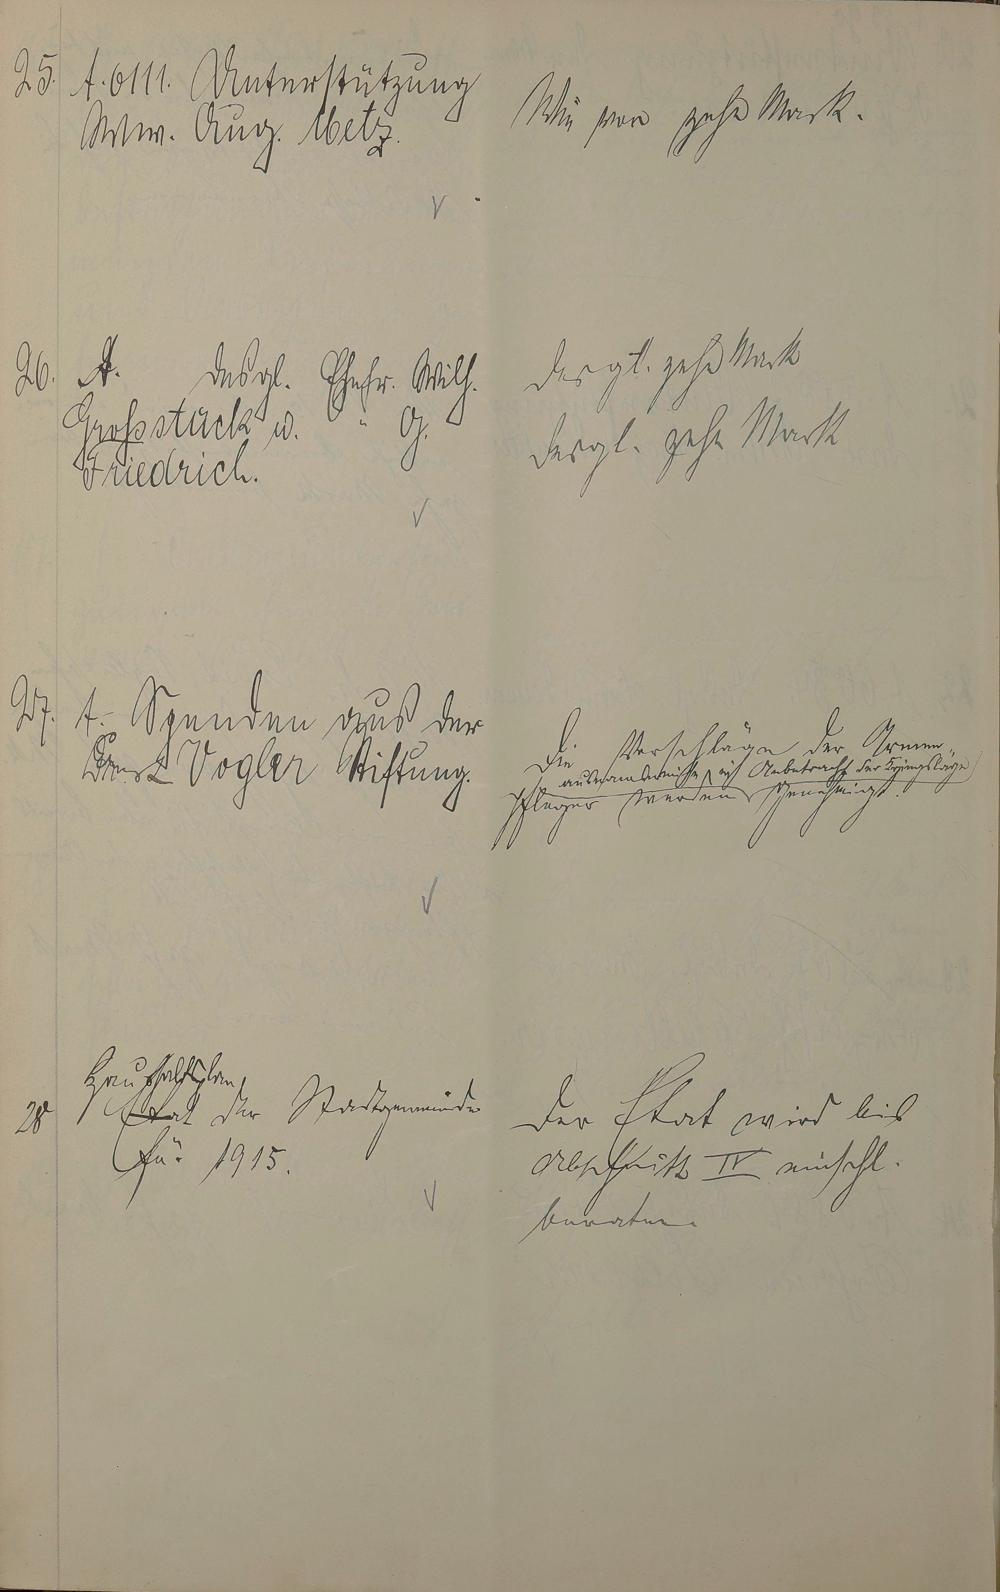 25. A. 6111. Unterstützung
Wwe. Aug. Metz.
Wie vor zehn Mark.
26. A. desgl. Ehefr. Wilh.
Großstück u. " G.
Friedrich.
desgl. zehn Mark
desgl. zehn Mark
27. A. Spenden aus der
Ernst Vogler Stiftung.
Die Vorschläge der Armen-
ausnahmsweise, in Anbetracht der Kriegslage
pfleger werden genehmigt.
Haushaltsplan
28 Etat der Stadtgemeinde
für 1915.
Der Etat wird bis
Abschnitt IV einschl.
beraten.